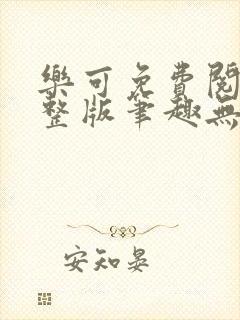 樂可免費閱
整版筆趣無
安知晏